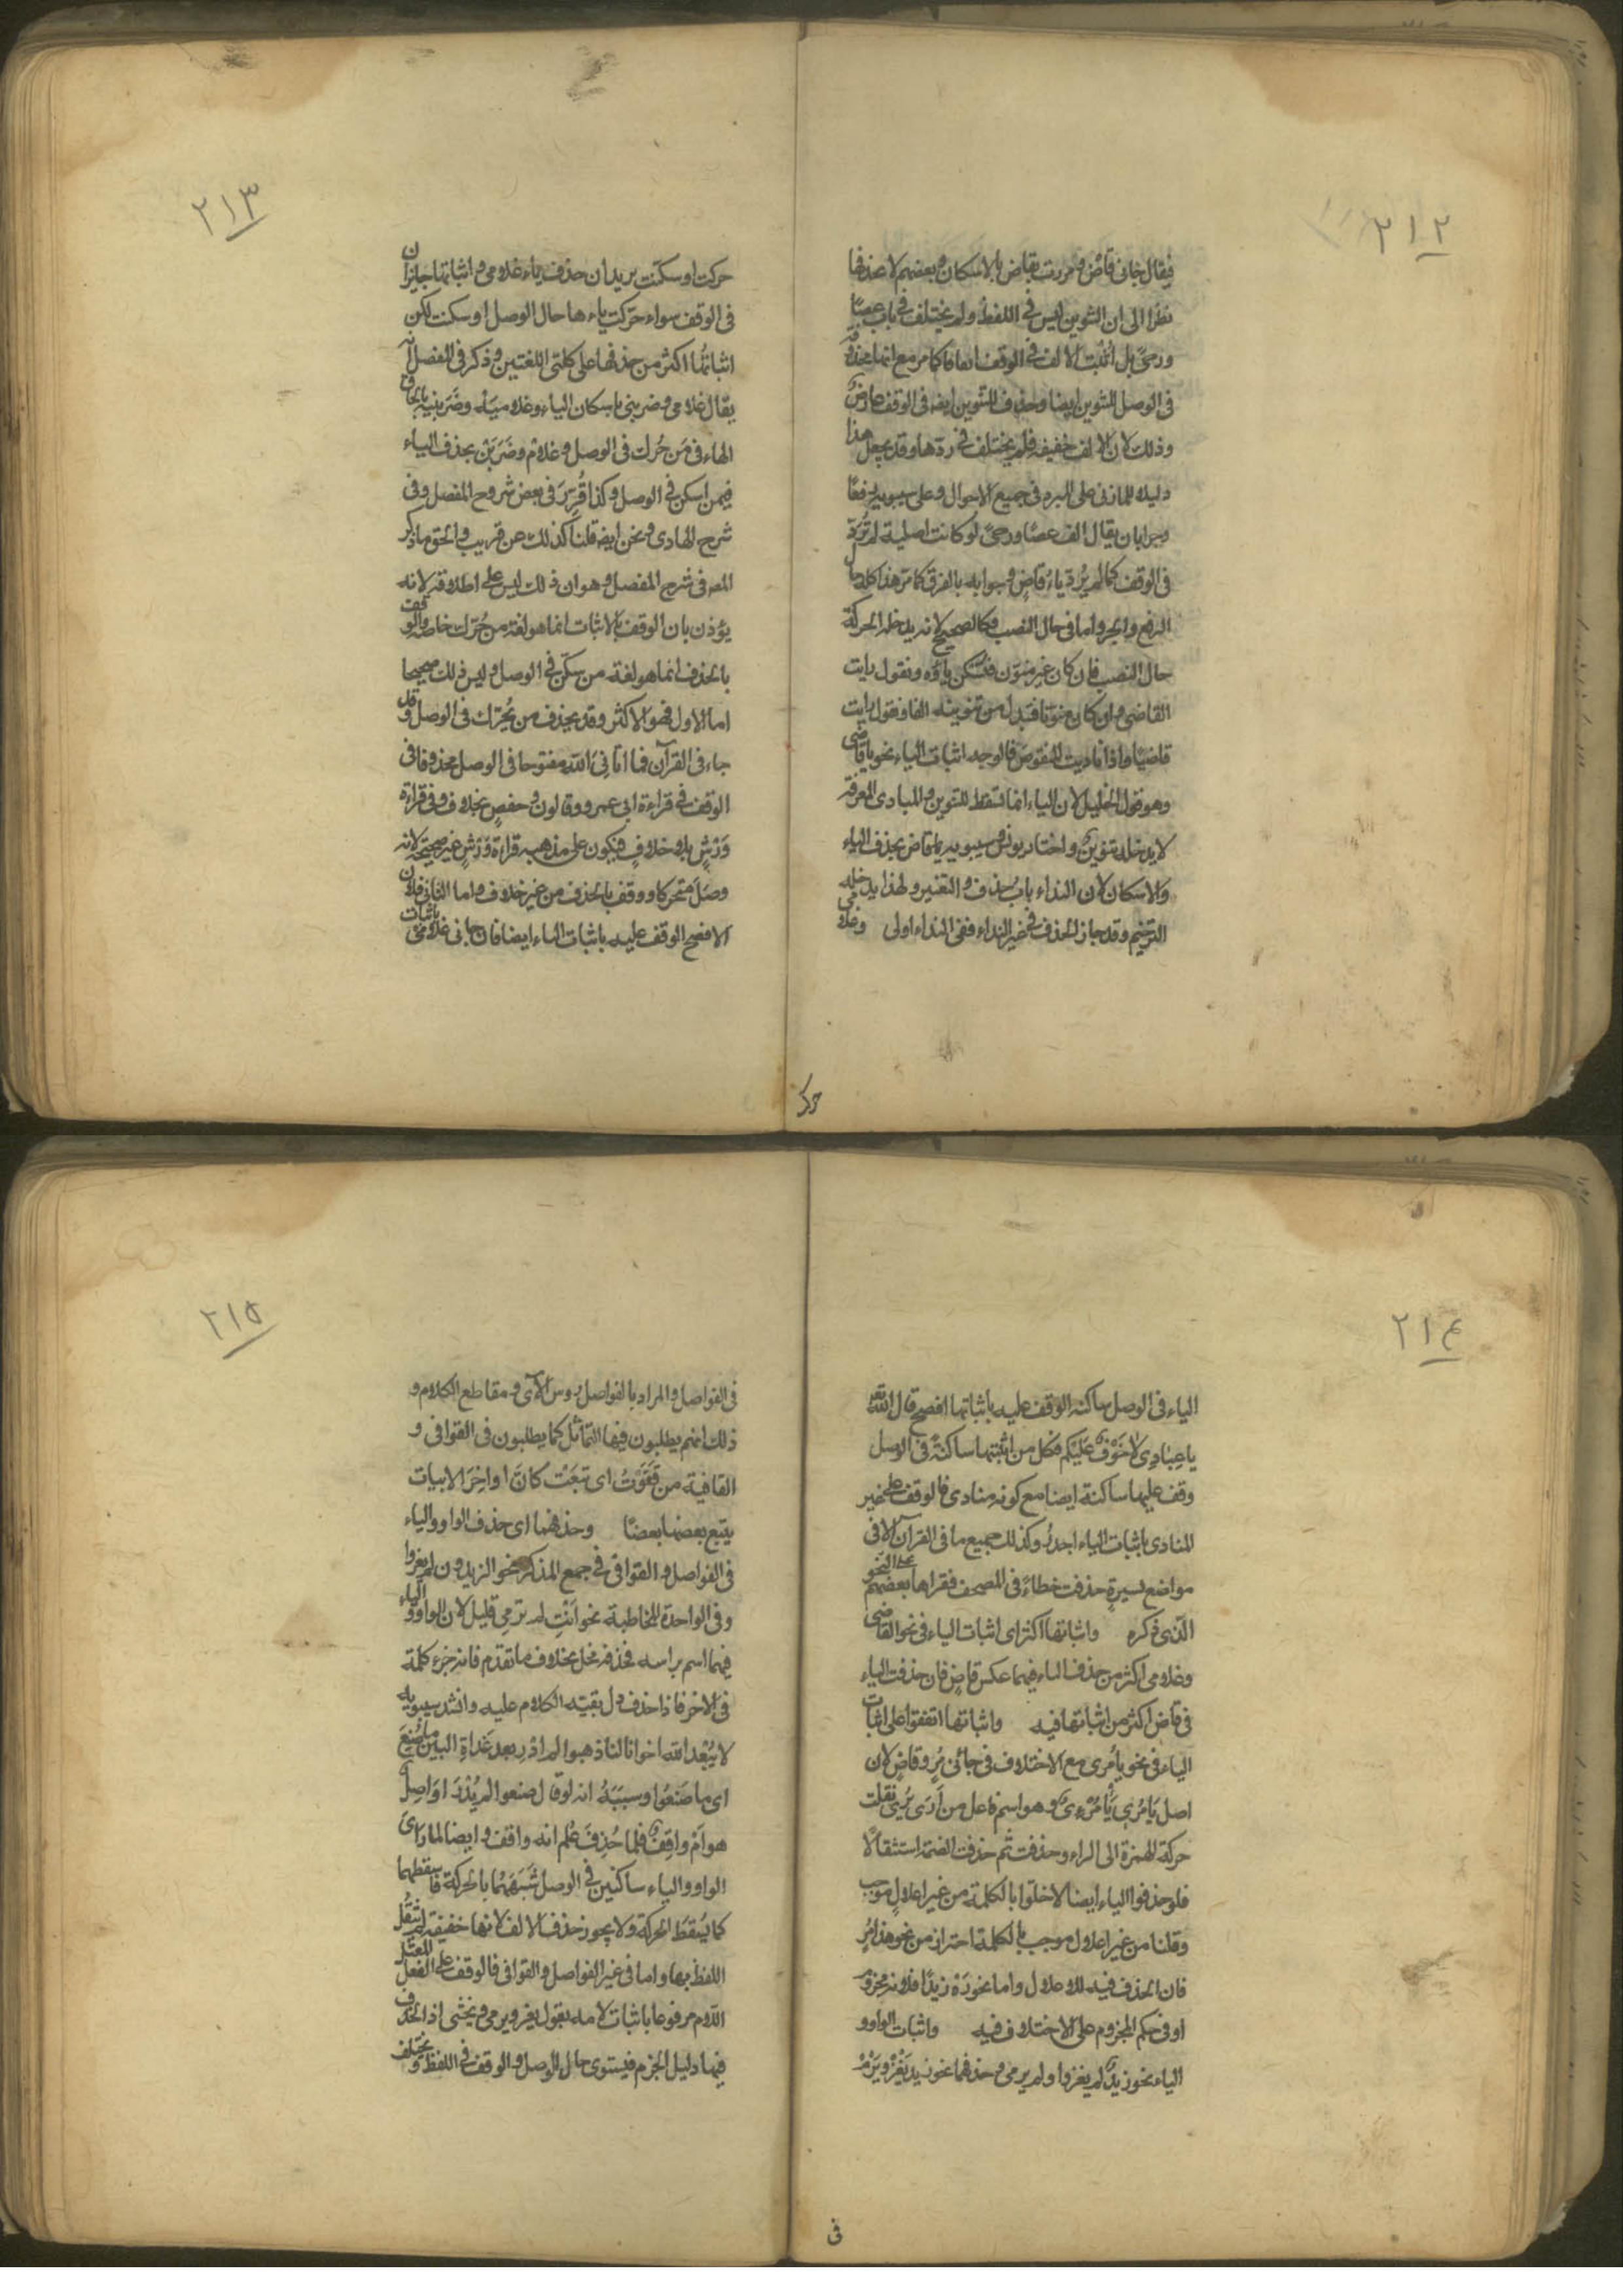 ٢١٢
فيقال جاءنى قاض ومررت بقاض بالاسكان وبعضهم لا يحذفها
نظرا الى ان التنوين ليس فى اللفظ ولم يختلف فى باب عصًا
ورحىً بل اثبت الالف فى الوقف اتفاقا كما مر مع انها محذوفة
فى الوصل للتنوين ايضا وحذف التنوين ايضه فى الوقف عارض
وذلك لان الالف خفيفة فلم يختلف فى ردها وقد يجعل هذا
دليلا للمازنى على المبرد فى جميع الاحوال وعلى سيبويه رفعًا
وجرا بان يقال الف عصًا ورحىً لو كانت اصلية لم تُرَدّ
فى الوقف كما لم يُردّ ياءُ قاضٍ وجوابه بالفرق كما مرّ هذا كله حال
الرفع والجر واما فى حال النصب فكالصحيح لانه يدخله الحركة
حال النصب فان كان غير منوّن فتسكن ياؤه وتقول رايت
القاضى وان كان منوّنا فتبدل من تنوينه الفا وتقول رايت
قاضيًا واذا ناديت المنقوصَ فالوجه اثبات الياء نحو يا قاضى
وهو قول الخليل لان الياء انما تسقط للتنوين والمنادى المعرفة
لا يدخله تنوينٌ واختار يونس وسيبويه يا قاض بحذف الياء
والاسكان لان النداء بابُ حذف والتغيير ولهذا يدخله
الترخيم وقد جاز الحذف فى غير النداء ففى النداء اولى وغلامى
حرك
٢١٣
حركت او سكّنت يريد ان حذف ياء غلامى و اثباتها جايزان
فى الوقف سواء حرّكت ياءها حال الوصل او سكنت لكن
اثباتُها اكثر من حذفها على كلتى اللغتين وذكر فى المفصل انه
يقال غلامى وضربنى باسكان الياء وغلاميَهْ وضَرَبنيَهْ بالحاق
الهاء فى مَن حرّك فى الوصل وغلامْ وضَرَبَنْ بحذف الياء
فيمن اسكن فى الوصل وكذا قُرِّرَ فى بعض شروح المفصل وفى
شرح الهادى ونحن ايضه قلنا كذلك عن قريب والحق ما ذكر
المصه فى شرح المفصل وهو ان ذلك ليس على اطلاقه لانه
يؤذن بان الوقف بالاثبات انما هو لغة من حُرّك خاصة والوقف
بالحذف انما هو لغة من سكّن فى الوصل وليس ذلك صحيحا
اما الاول فهو الاكثر وقد يحذف من يُحرّك فى الوصل وقد
جاء فى القرآن فما اتانىَ اللّٰه مفتوحا فى الوصل محذوفا فى
الوقف فى قراءة ابى عمرو وقالون وحفصٍ بخلاف وفى قراءة
وَرْشٍ بلا خلافٍ فيكون على مذهبه قراءة وَرْشٍ غير صحيحة لانه
وصَلَ متحركا ووقف بالحذف من غير خلاف واما الثانى فلان
الافصح الوقف عليه باثبات الياء ايضا فان جاءنى غلامى باثبات
٢١٤
الياء فى الوصل ساكنه الوقف عليه باثباتها افصح قال اللّٰه تعه
يا عِبَادِى لَا خَوْفٌ عَلَيْكم فكل من اثبتها ساكنةً فى الوصل
وقف عليها ساكنة ايضا مع كونه منادى فالوقف على غير
المنادى باثبات الياء اجدرُ وكذلك جميع ما فى القرآن الا فى
مواضع يسيرةٍ حذفت خطاءً فى المصحف فقراها بعضهم على النحو
الّذى ذكره واثباتها اكثر اى اثبات الياء فى نحو القاضى
وغلامى اكثر من حذف الياء فيهما عكس قاضٍ فان حذفت الياء
فى قاض اكثر من اثباتها فيه واثباتها اتفقوا على اثبات
الياء فى نحو يا مُرى مع الاختلاف فى جاءنى مُرٍ وقاضٍ لان
اصل يَا مُرِى يَا مُرْءِىُ وهو اسم فاعل من اَرَى يُرِى نقلت
حركة الهمزة الى الراء وحذفت ثم حذفت الضمة استثقالًا
فلو حذفوا الياء ايضا لاخلّوا بالكلمة من غير اعلالٍ موجب
وقلنا من غير اعلال موجب بالكلمة احتراز من نحو هذا مُرٍ
فان الحذف فيه للاعلال واما نحو رَهْ زيدًا فلانه مجزوم
او فى حكم المجزوم على الاختلاف فيه واثبات الواو و
الياء نحو زيدٌ لم يغزوا ولم يرمى وحذفهما نحو زيد يَغْزْ ويَرْمْ
فى
٢١٥
فى الفواصل والمراد بالفواصل رءوس الآى و مقاطع الكلام و
ذلك انهم يطلبون فيها التماثل كما يطلبون فى القوافى و
القافية من قَفَوْتُ اى تبَعْت كانَّ اواخِرَ الابيات
يتبع بعضها بعضًا وحذفهما اى حذف الواو والياء
فى الفواصل و القوافى فى جمع المذكر نحو الزيدون لم يغزوا
وفى الواحدة المخاطبة نحو اَنْتِ لم ترمى قليل لان الواو والياء
فيهما اسم براسه فحذفه مخل بخلاف ما تقدم فانه جزء كلمة
فى الاخر فاذا حذف دل بقيته الكلام عليه وانشد سيبويه
لا يُبْعِد اللّٰه اخوانا لنا ذهبوا لم ادرِ بعد غَداةِ البين ما صُنِعَ
اى ما صَنَعُوا وسببَبُه انه لو قال صنعوا لم يُدْرَ اوَاصِلٌ
هو اَمْ واقِفٌ فلما حُذِفَ عُلم انه واقف و ايضا لما راى
الواو والياء ساكنين فى الوصل شَبَّهَهُما بالحركة فاسقطهما
كما يُسقطُ الحركة ولا يجوز حذف الالف لانها خفيفة لم تثقُل
اللفظ بها واما فى غير الفواصل والقوافى فالوقف على الفعل المعتل
اللام مرفوعا باثبات لامه تقول يغزو ويرمى ويخشى اذ الحذف
فيها دليل الجزم فيستوى حال الوصل والوقف فى اللفظ ويختلف